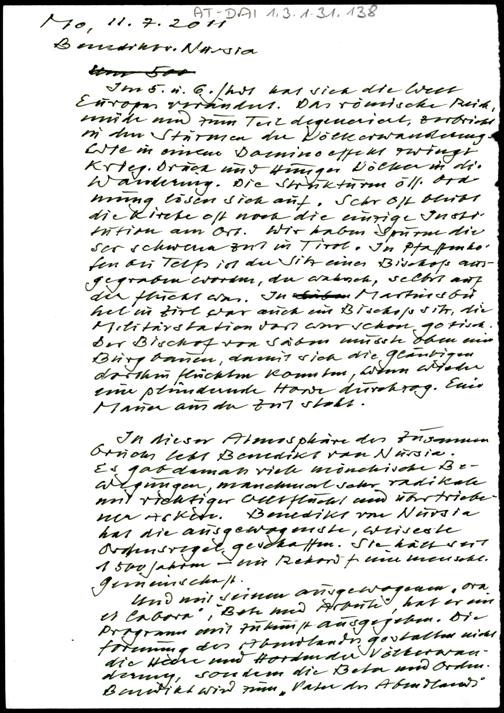 AT-DAI 1.3.1.31.138
Mo, 11.7.2011
Benedikt v. Nursia
Um 500
Im 5. u. 6. Jhdt hat sich die Welt
Europas verändert. Das römische Reich,
müde und zum Teil degeneriert, zerbricht
in den Stürmen der Völkerwanderung.
Wie in einem Dominoeffekt zwingt
Krieg, Druck und Hunger Völker in die
Wanderung. Die Strukturen öff. Ord
nung lösen sich auf. Sehr oft bleibt
die Kirche oft noch die einzige Insti
tution am Ort. Wir haben Spuren die
ser schweren Zeit in Tirol. In Pfaffenho
fen bei Telfs ist der Sitz eines Bischofs aus-
gegraben worden, der wahrsch, selbst auf
der Flucht war. In Martinsbü
hel in Zirl war auch ein Bischofssitz, die
Militärstation dort war schon gotisch.
Der Bischof von Säben musste oben eine
Burg bauen, damit sich die Gläubigen
dorthin flüchten konnten, wenn wieder
eine plündernde Horde durchzog. Eine
Mauer aus der Zeit steht.
In dieser Atmosphäre des Zusammen
bruchs lebt Benedikt von Nursia.
Es gab damals viele mönchische Be-
wegungen, manchmal sehr radikale
mit richtiger Weltflucht und übertriebe
ner Askese. Benedikt von Nursia
hat die ausgewogenste, weiseste
Ordensregel geschaffen. Sie hält seit
1500 Jahren - ein Rekord f. eine menschl.
Gemeinschaft.
Und mit seinem ausgewogenen "ora
et labora", "Bete und Arbeite", hat er ein
Programm mit Zukunft ausgegeben. Die
Formung des Abendlandes gestalten nicht
die Heere und Horden der Völkerwan-
derung, sondern die Beter und Orden.
Benedikt wird zum "Vater des Abendlands"